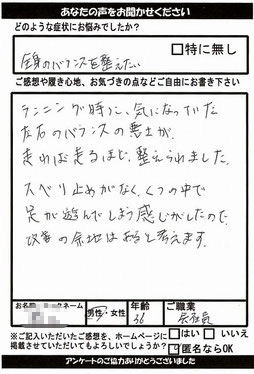 あなたの声をお聞かせください
どのような症状にお悩みでしたか?
□特に無し
全身のバランスを整えたい
ご感想や履き心地、お気づきの点などご自由にお書き下さい
ランニング時に、気になっていた
左右のバランスの悪さが、
走れば走るほど、整えられました。
スベリ止めがなく、くつの中で
足が遊んでしまう感じがしたので、
改善の余地はあると考えます。
お名前
ニックネーム
男性・女性
年齢
36
ご職業
会社員
※ご記入いただいたご感想を、ホームページに
掲載させていただいてもよろしいでしょうか?
□はい □いいえ
匿名ならOK
アンケートのご協力ありがとうございました